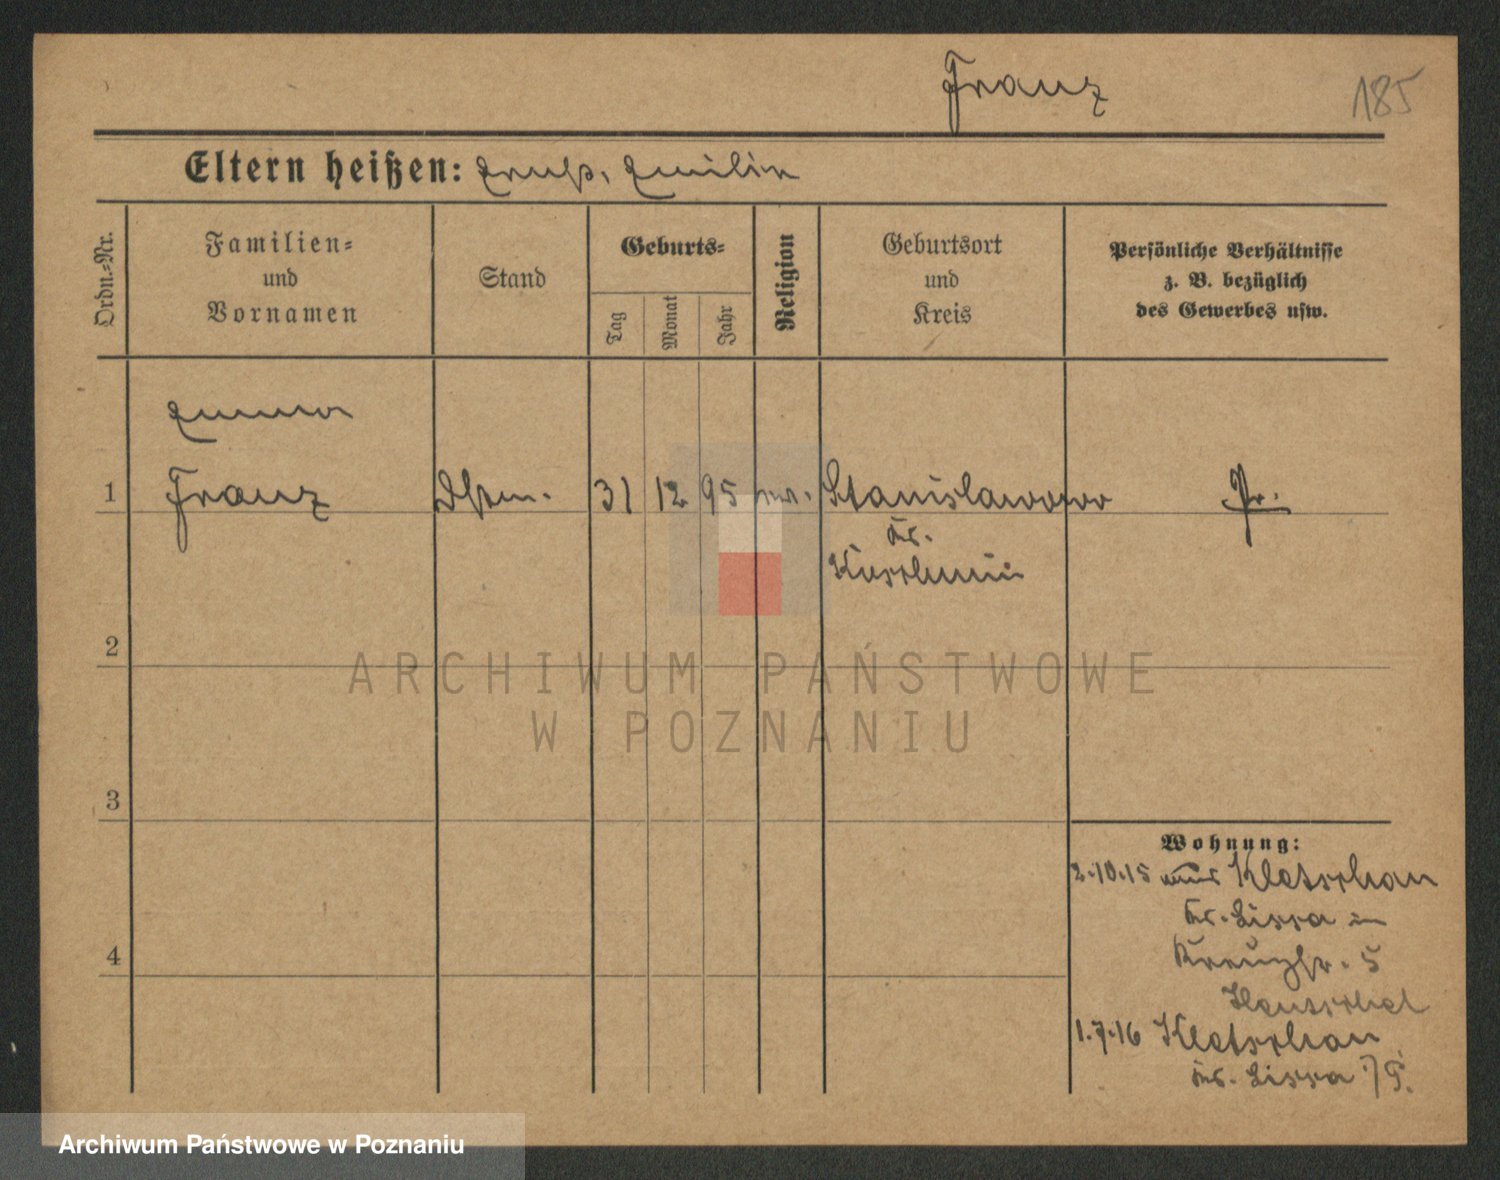 Franz
185
Eltern heißen: Ernst, Emilie
Ordn.=Nr.
Familien=
und
Vornamen
Stand
Geburts=
Tag
Monat
Jahr
Religion
Geburtsort
und
Kreis
Persönliche Verhältnisse
z. B. bezüglich
des Gewerbes usw.
Emma
1 Franz 31 12 95 Stanislawowo Pr.
Kr.
Koschmin
2
3
4
Wohnung:
2.10.15 Kletschau
Kr. Lissa in
Kreuzstr. 5
1.7.16 Kletschau
Kr. Lissa /P.
ARCHIWUM PAŃSTWOWE
W POZNANIU
Archiwum Państwowe w Poznaniu